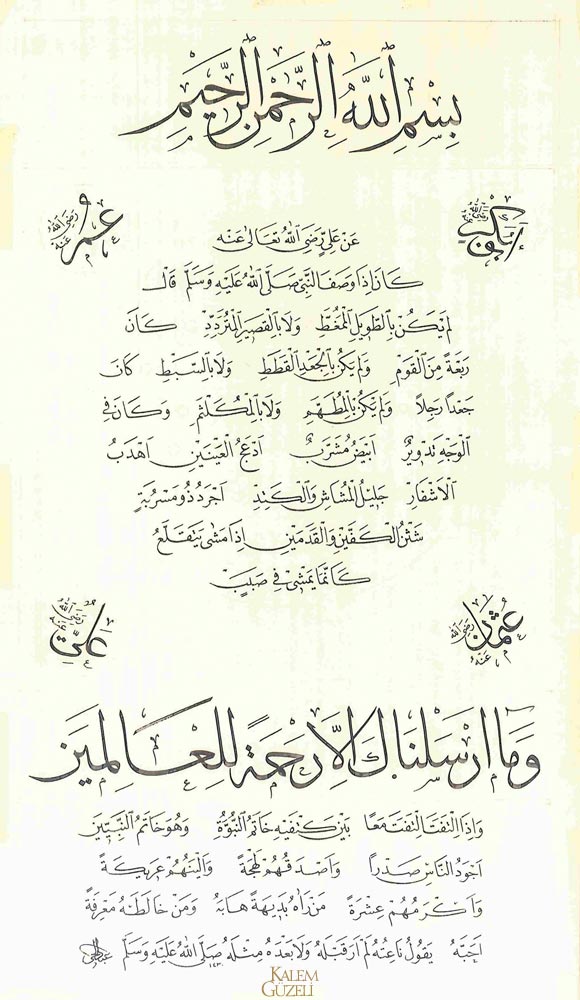 بِسْمِ اللهِ الرَّحْمٰنِ الرَّحِيمِ
ابو بكر رضي الله عنه
عمر رضي الله عنه
عَنْ عَلِيٍّ رَضِيَ اللهُ تَعَالٰى عَنْهُ
كَانَ اِذَا وَصَفَ النَّبِيَّ صَلَّى اللهُ عَلَيْهِ وَسَلَّمَ قَالَ
لَمْ يَكُنْ بِالطَّوِيلِ الْمُمَّغِطِ وَلَا بِالْقَصِيرِ الْمُتَرَدِّدِ كَانَ
رَبْعَةً مِنَ الْقَوْمِ وَلَمْ يَكُنْ بِالْجَعْدِ الْقَطَطِ وَلَا بِالسَّبْطِ كَانَ
جَعْدًا رَجِلًا وَلَمْ يَكُنْ بِالْمُطَهَّمِ وَلَا بِالْمُكَلْثَمِ وَكَانَ فِي
الْوَجْهِ تَدْوِيرٌ اَبْيَضُ مُشْرَبٌ اَدْعَجُ الْعَيْنَيْنِ اَهْدَبُ
الْاَشْفَارِ جَلِيلُ الْمُشَاشِ وَالْكَتَدِ اَجْرَدُ ذُو مَسْرُبَةٍ
شَثْنُ الْكَفَّيْنِ وَالْقَدَمَيْنِ اِذَا مَشٰى يَتَقَلَّعُ
كَاَنَّمَا يَمْشِي فِي صَبَبٍ
عثمان رضي الله عنه
علي رضي الله عنه
وَمَا اَرْسَلْنَاكَ اِلَّا رَحْمَةً لِلْعَالَمِينَ
وَاِذَا الْتَفَتَ الْتَفَتَ مَعًا بَيْنَ كَتِفَيْهِ خَاتَمُ النُّبُوَّةِ وَهُوَ خَاتَمُ النَّبِيِّينَ
اَجْوَدُ النَّاسِ صَدْرًا وَاَصْدَقُهُمْ لَهْجَةً وَاَلْيَنُهُمْ عَرِيكَةً
وَاَكْرَمُهُمْ عِشْرَةً مَنْ رَاٰهُ بَدِيهَةً هَابَهُ وَمَنْ خَالَطَهُ مَعْرِفَةً
اَحَبَّهُ يَقُولُ نَاعِتُهُ لَمْ اَرَ قَبْلَهُ وَلَا بَعْدَهُ مِثْلَهُ صَلَّى اللهُ عَلَيْهِ وَسَلَّمَ
KALEM
GÜZELİ